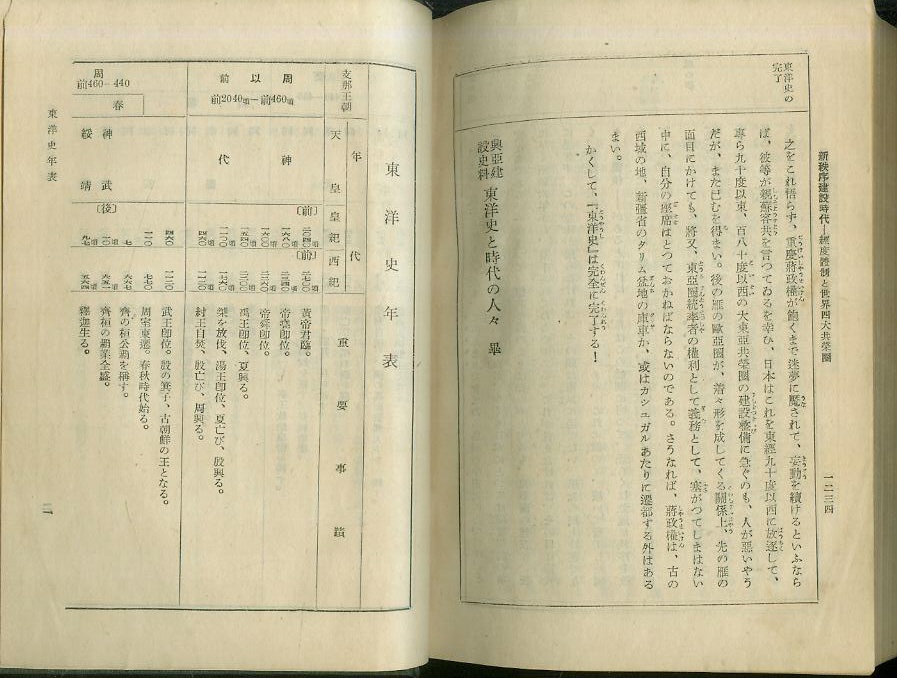 新秩序建設時代―經度體制と世界四大共榮圈
一二三四
東洋史の
完了
之をこれ悟らず、重慶蔣政權が飽くまで迷夢に魘されて、妄動を續けるといふなら
ば、彼等が親蘇容共を言つてゐるを幸ひ、日本はこれを東經九十度以西に放逐して、
專ら九十度以東、百八十度以西の大東亞共榮圈の建設整備に急ぐのも、人が惡いやう
だが、また已むを得まい。後の雁の歐亞圈が、着々形を成してくる關係上、先の雁の
面目にかけても、將又、東亞圈統率者の權利として義務として、塞がつてしまはない
中に、自分の座席はとつておかねばならないのである。さうなれば、蔣政權は、古の
西域の地、新疆省のタリム盆地の庫車か、或はカシュガルあたりに遷都する外はある
まい。
かくして、『東洋史』は完全に完了する！
興亞建
設史料
東洋史と時代の人々 畢
東洋史年表
支那王朝
年代
天皇
皇紀
西紀
重要事績
周以前
前2040頃―前460頃
神代
〔前〕
〔前〕
黃帝君臨。
帝堯卽位。
帝舜卽位。
禹王卽位、夏興る。
桀を放伐、湯王卽位、夏亡び、殷興る。
紂王自焚、殷亡び、周興る。
周
前460―440
春
神武
綏靖
〔後〕
武王卽位。殷の箕子、古朝鮮の王となる。
周室東遷。春秋時代始る。
齊の桓公覇を稱す。
齊桓の覇業全盛。
釋迦生る。
東洋史年表